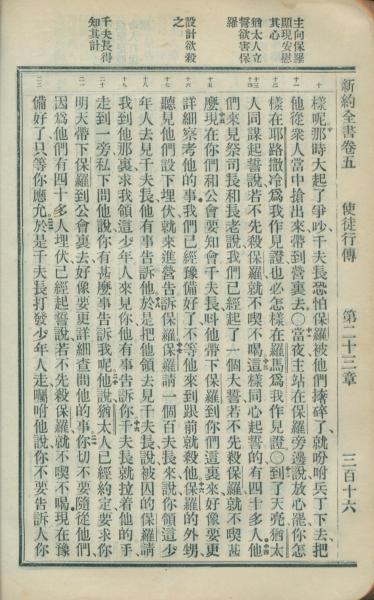 新約全書卷五 使徒行傳 第二十三章 三百十六
主向保羅
顯現安慰
其心
猶太人立
誓欲害保
羅
設計欲殺
之
千夫長得
知其計
樣呢那時大起了爭吵千夫長恐怕保羅被他們擘碎了就吩咐兵丁下去把
他從衆人當中搶出來帶到營裏去〇當夜主站在保羅旁邊說放心罷你怎
樣在耶路撒冷爲我作見證也必怎樣在羅馬爲我作見證〇到了天亮猶太
人同謀起誓說若不先殺保羅就不喫不喝這樣同心起誓的有四十多人他
們來見祭司長和長老說我們已經起了一個大誓若不先殺保羅就不喫甚
麼現在你們和公會要知會千夫長呌他帶下保羅到你們這裏來好像要更
詳細察考他的事我們已經豫備好了不等他來到跟前就殺他保羅的外甥
聽見他們設下埋伏就來進營告訴保羅保羅請一個百夫長來說你領這少
年人去見千夫長他有事告訴他於是把他領去見千夫長說被囚的保羅請
我到他那裏求我領這少年人來見你他有事告訴你千夫長就拉着他的手
走到一旁私下問他說你有甚麼事告訴我呢他說猶太人已經約定要求你
明天帶下保羅到公會裏去好像要更詳細查問他的事你切不要隨從他們
因爲他們有四十多人埋伏已經起誓說若不先殺保羅就不喫不喝現在豫
備好了只等你應允於是千夫長打發少年人走囑咐他說你不要告訴人你